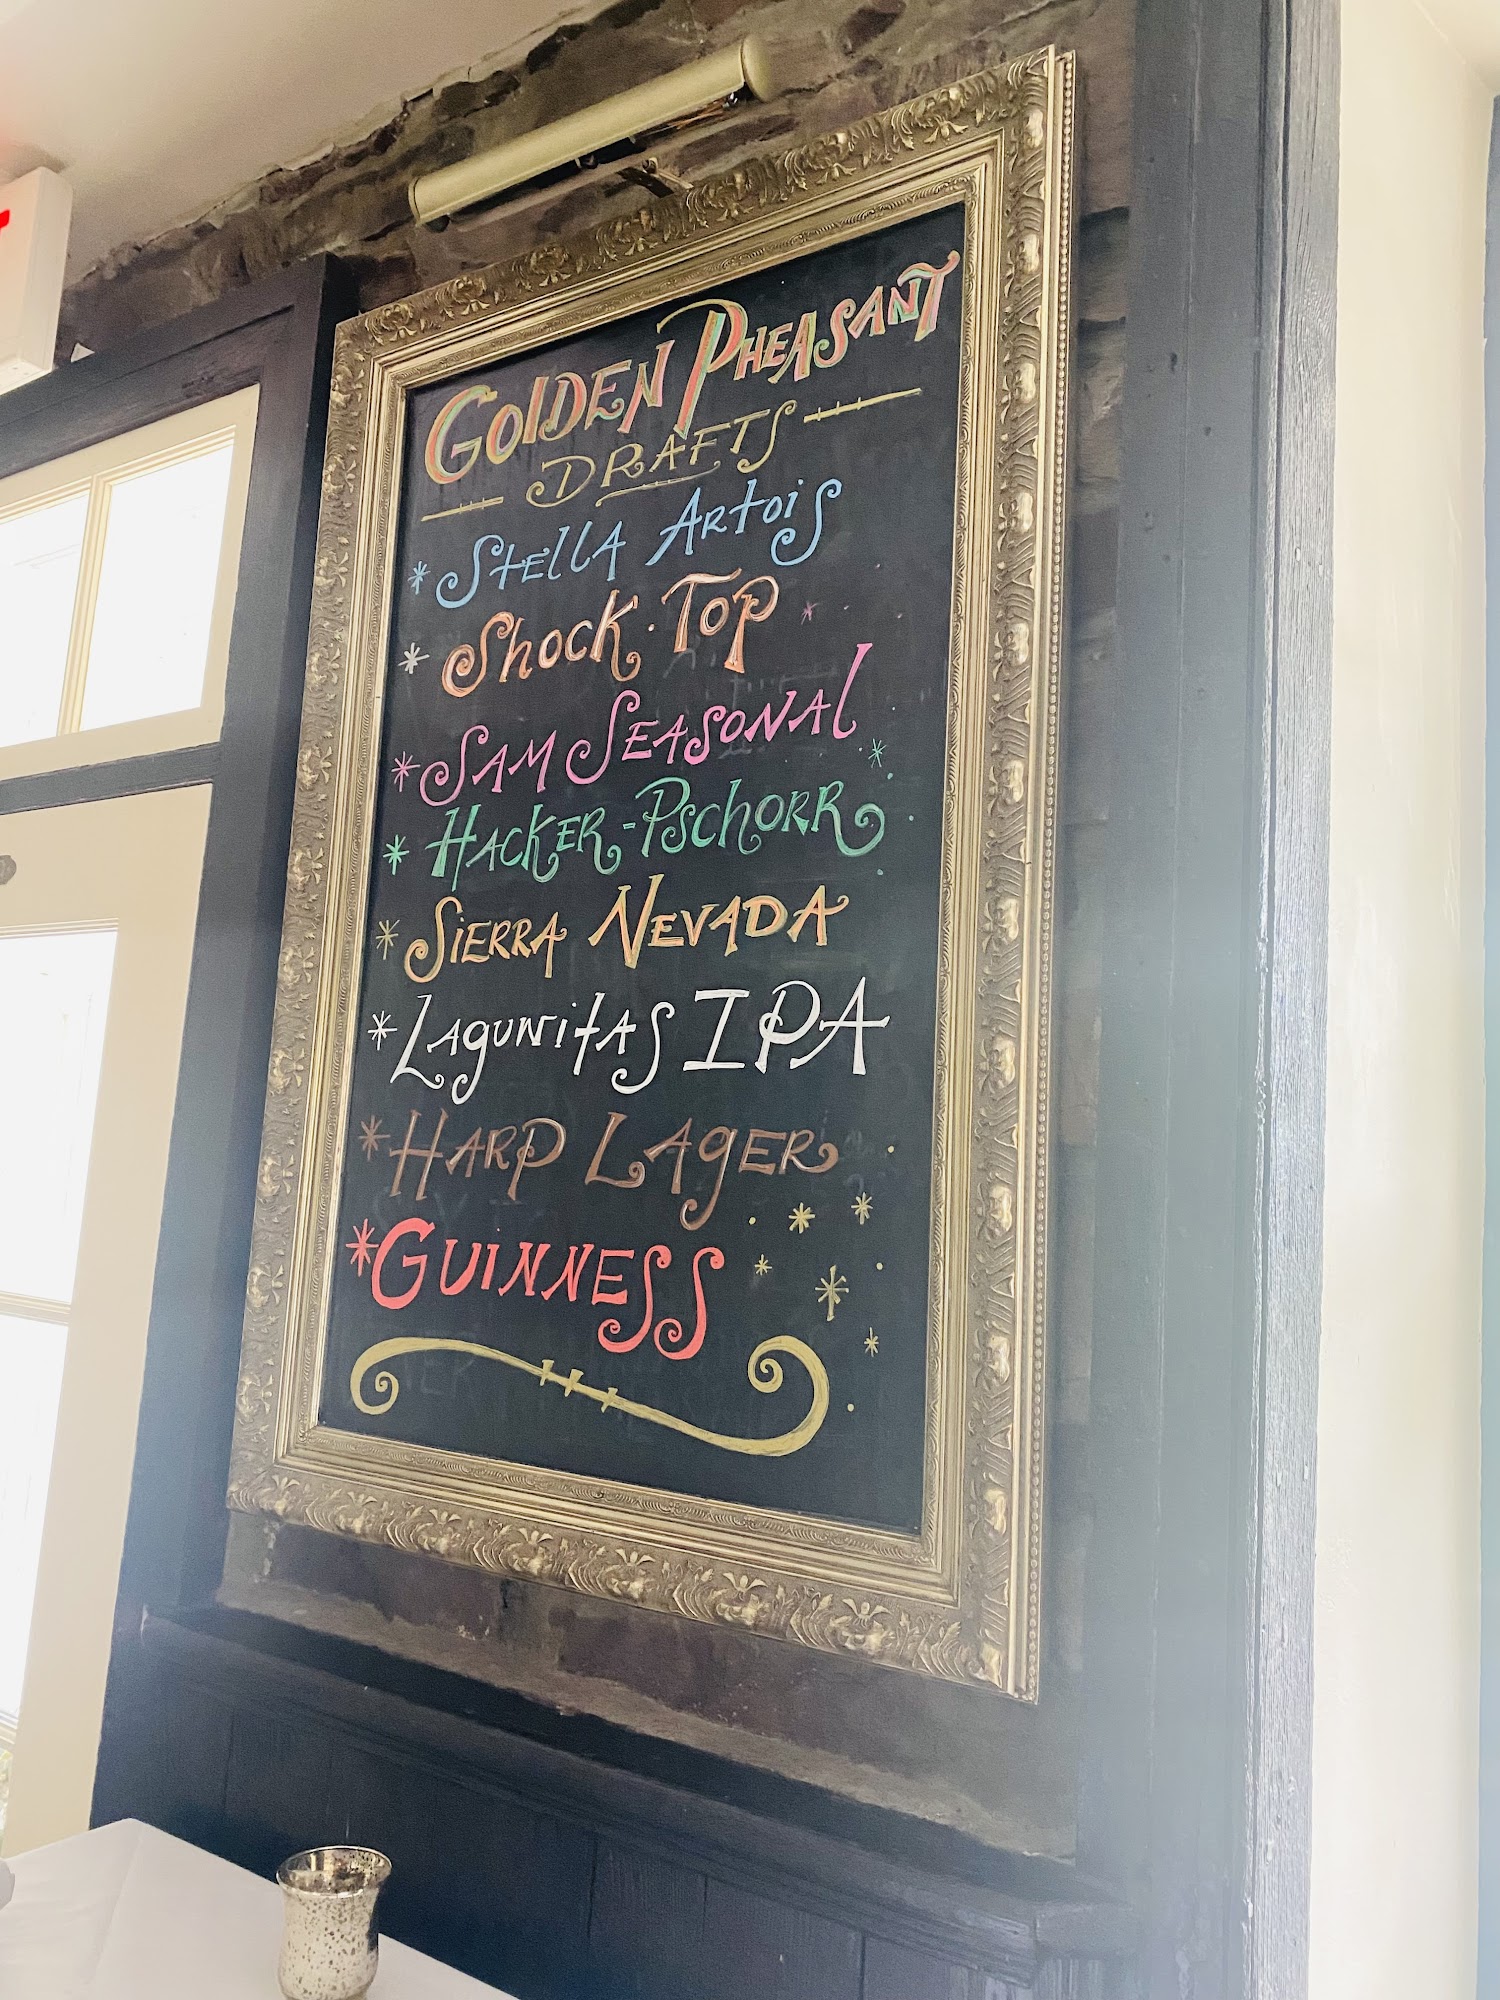 Golden Pheasant
Drafts
* Stella Artois
* Shock Top
* Sam Seasonal
* Hacker-Pschorr
* Sierra Nevada
* Lagunitas IPA
* Harp Lager
* Guinness